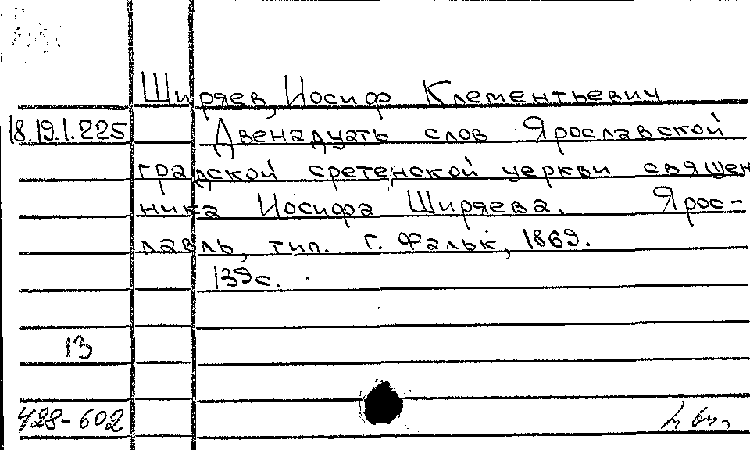 Ширяев, Иосиф Клементьевич
18.19.1.225 Двенадцать слов Ярославской
градской сретенской церкви священ
ника Иосифа Ширяева. Ярос-
лавль, тип. Г. Фальк, 1869.
139с.
13
428-602